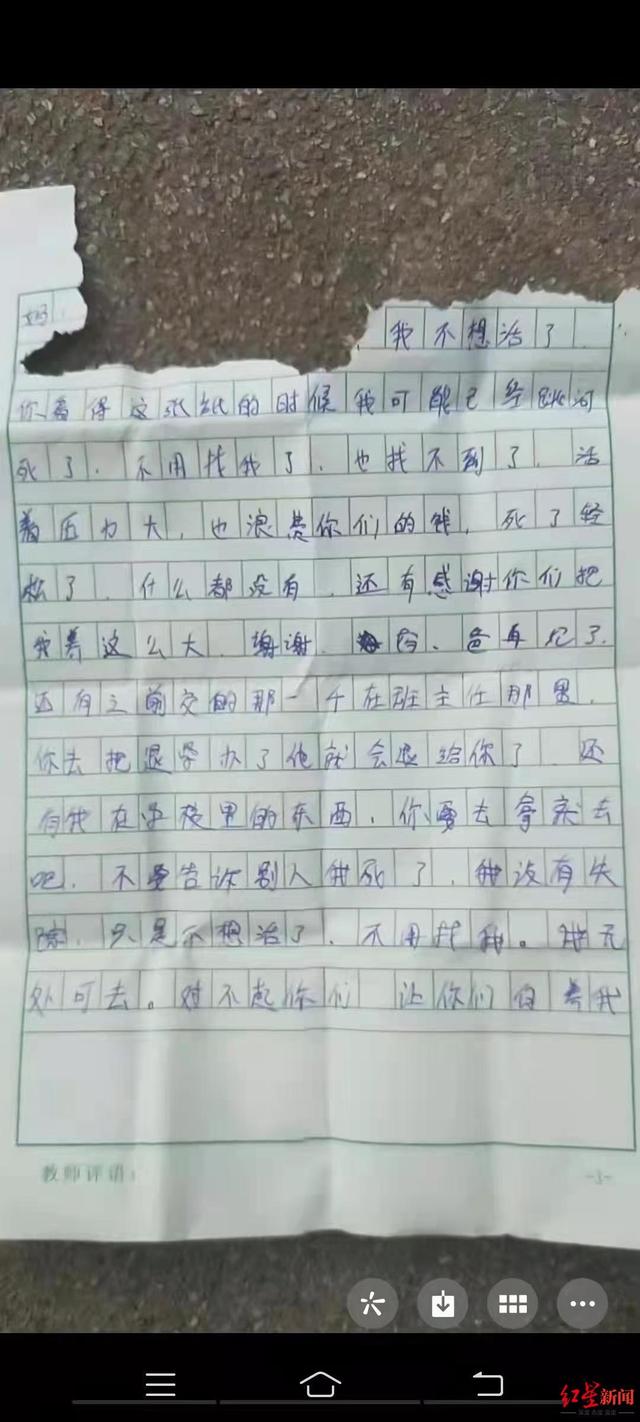 妈
我不想活了.
你看得这张纸的时候我可能已经跳河
死了.不用找我了.也找不到了.活
着压力大,也浪费你们的钱,死了轻
松了.什么都没有.还有感谢你们把
我养这么大.谢谢. 妈、爸再见了.
还有之前交的那一千在班主任那里.
你去把退学办了他就会退给你了.还
有我在学校里的东西.你要去拿就去
吧.不要告诉别人我死了.我没有失
踪.只是不想活了.不用找我。我无
处可去。对不起你们 让你们白养我
教师评语:
-3-
红星新闻